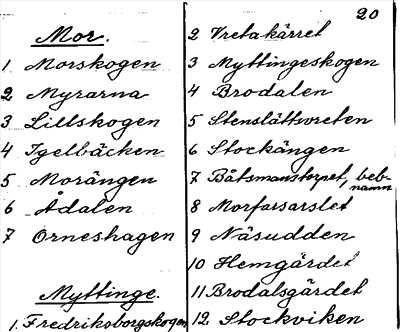 Mor.
1 Morskogen
2 Myrarna
3 Lillskogen
4 Igelbäcken
5 Morängen
6 Ådalen
7 Örneshagen
Myttinge.
1. Fredriksborgskogen
20
2 Vretakärret
3 Myttingeskogen
4 Brodalen
5 Stenslättsvreten
6 Stockängen
7 Båtsmanstorpet, beb-
namn
8 Morfarsarslet
9 Näsudden
10 Hemgärdet
11 Brodalsgärdet
12 Stockviken